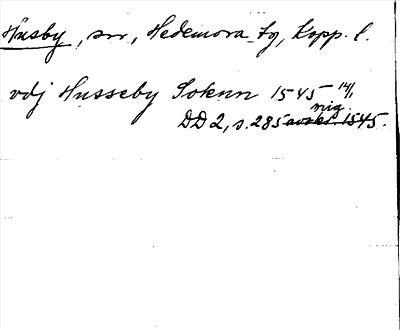 Husby, sn, Hedemora tg, Kopp. l.
vdj Husseby Sokenn 1545 14/1
DD 2, s. 285 avskr. orig. 1545.